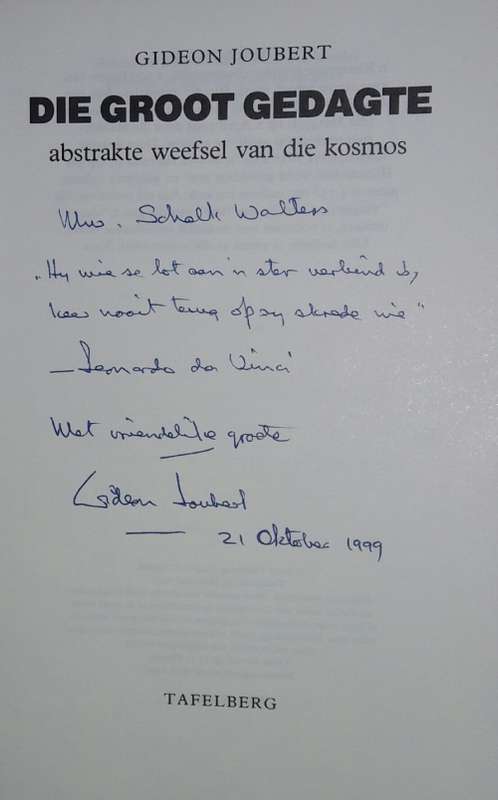 GIDEON JOUBERT
DIE GROOT GEDAGTE
abstrakte weefsel van die kosmos
Mnr. Schalk Walters
„Hy wie se lot aan 'n ster verbind is,
keer nooit terug op sy skrede nie"
— Leonardo da Vinci
Met vriendelike groete
Gideon Joubert
21 Oktober 1999
TAFELBERG